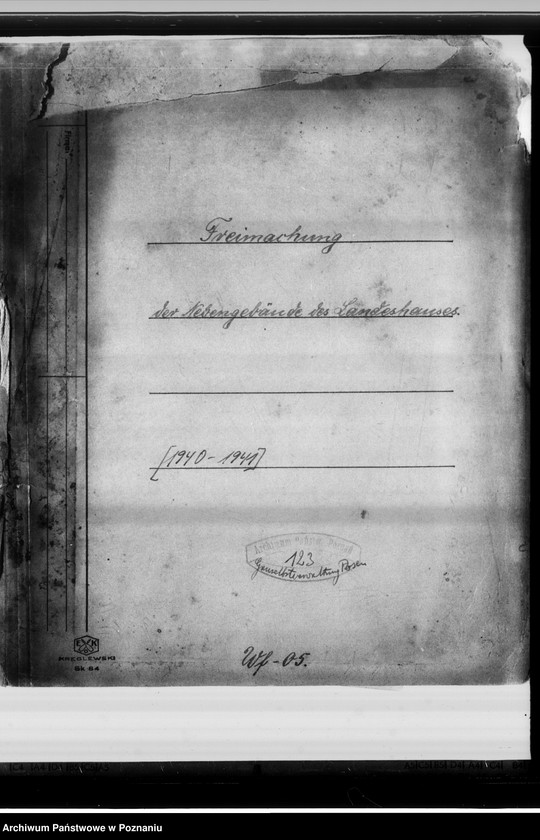 Freimachung
der Nebengebäude des Landeshauses.
[1940-1941]
123
Gauselbstverwaltung Posen
PRĘGLEWSKI
SK 64
Wf-05.
Archiwum Państwowe w Poznaniu